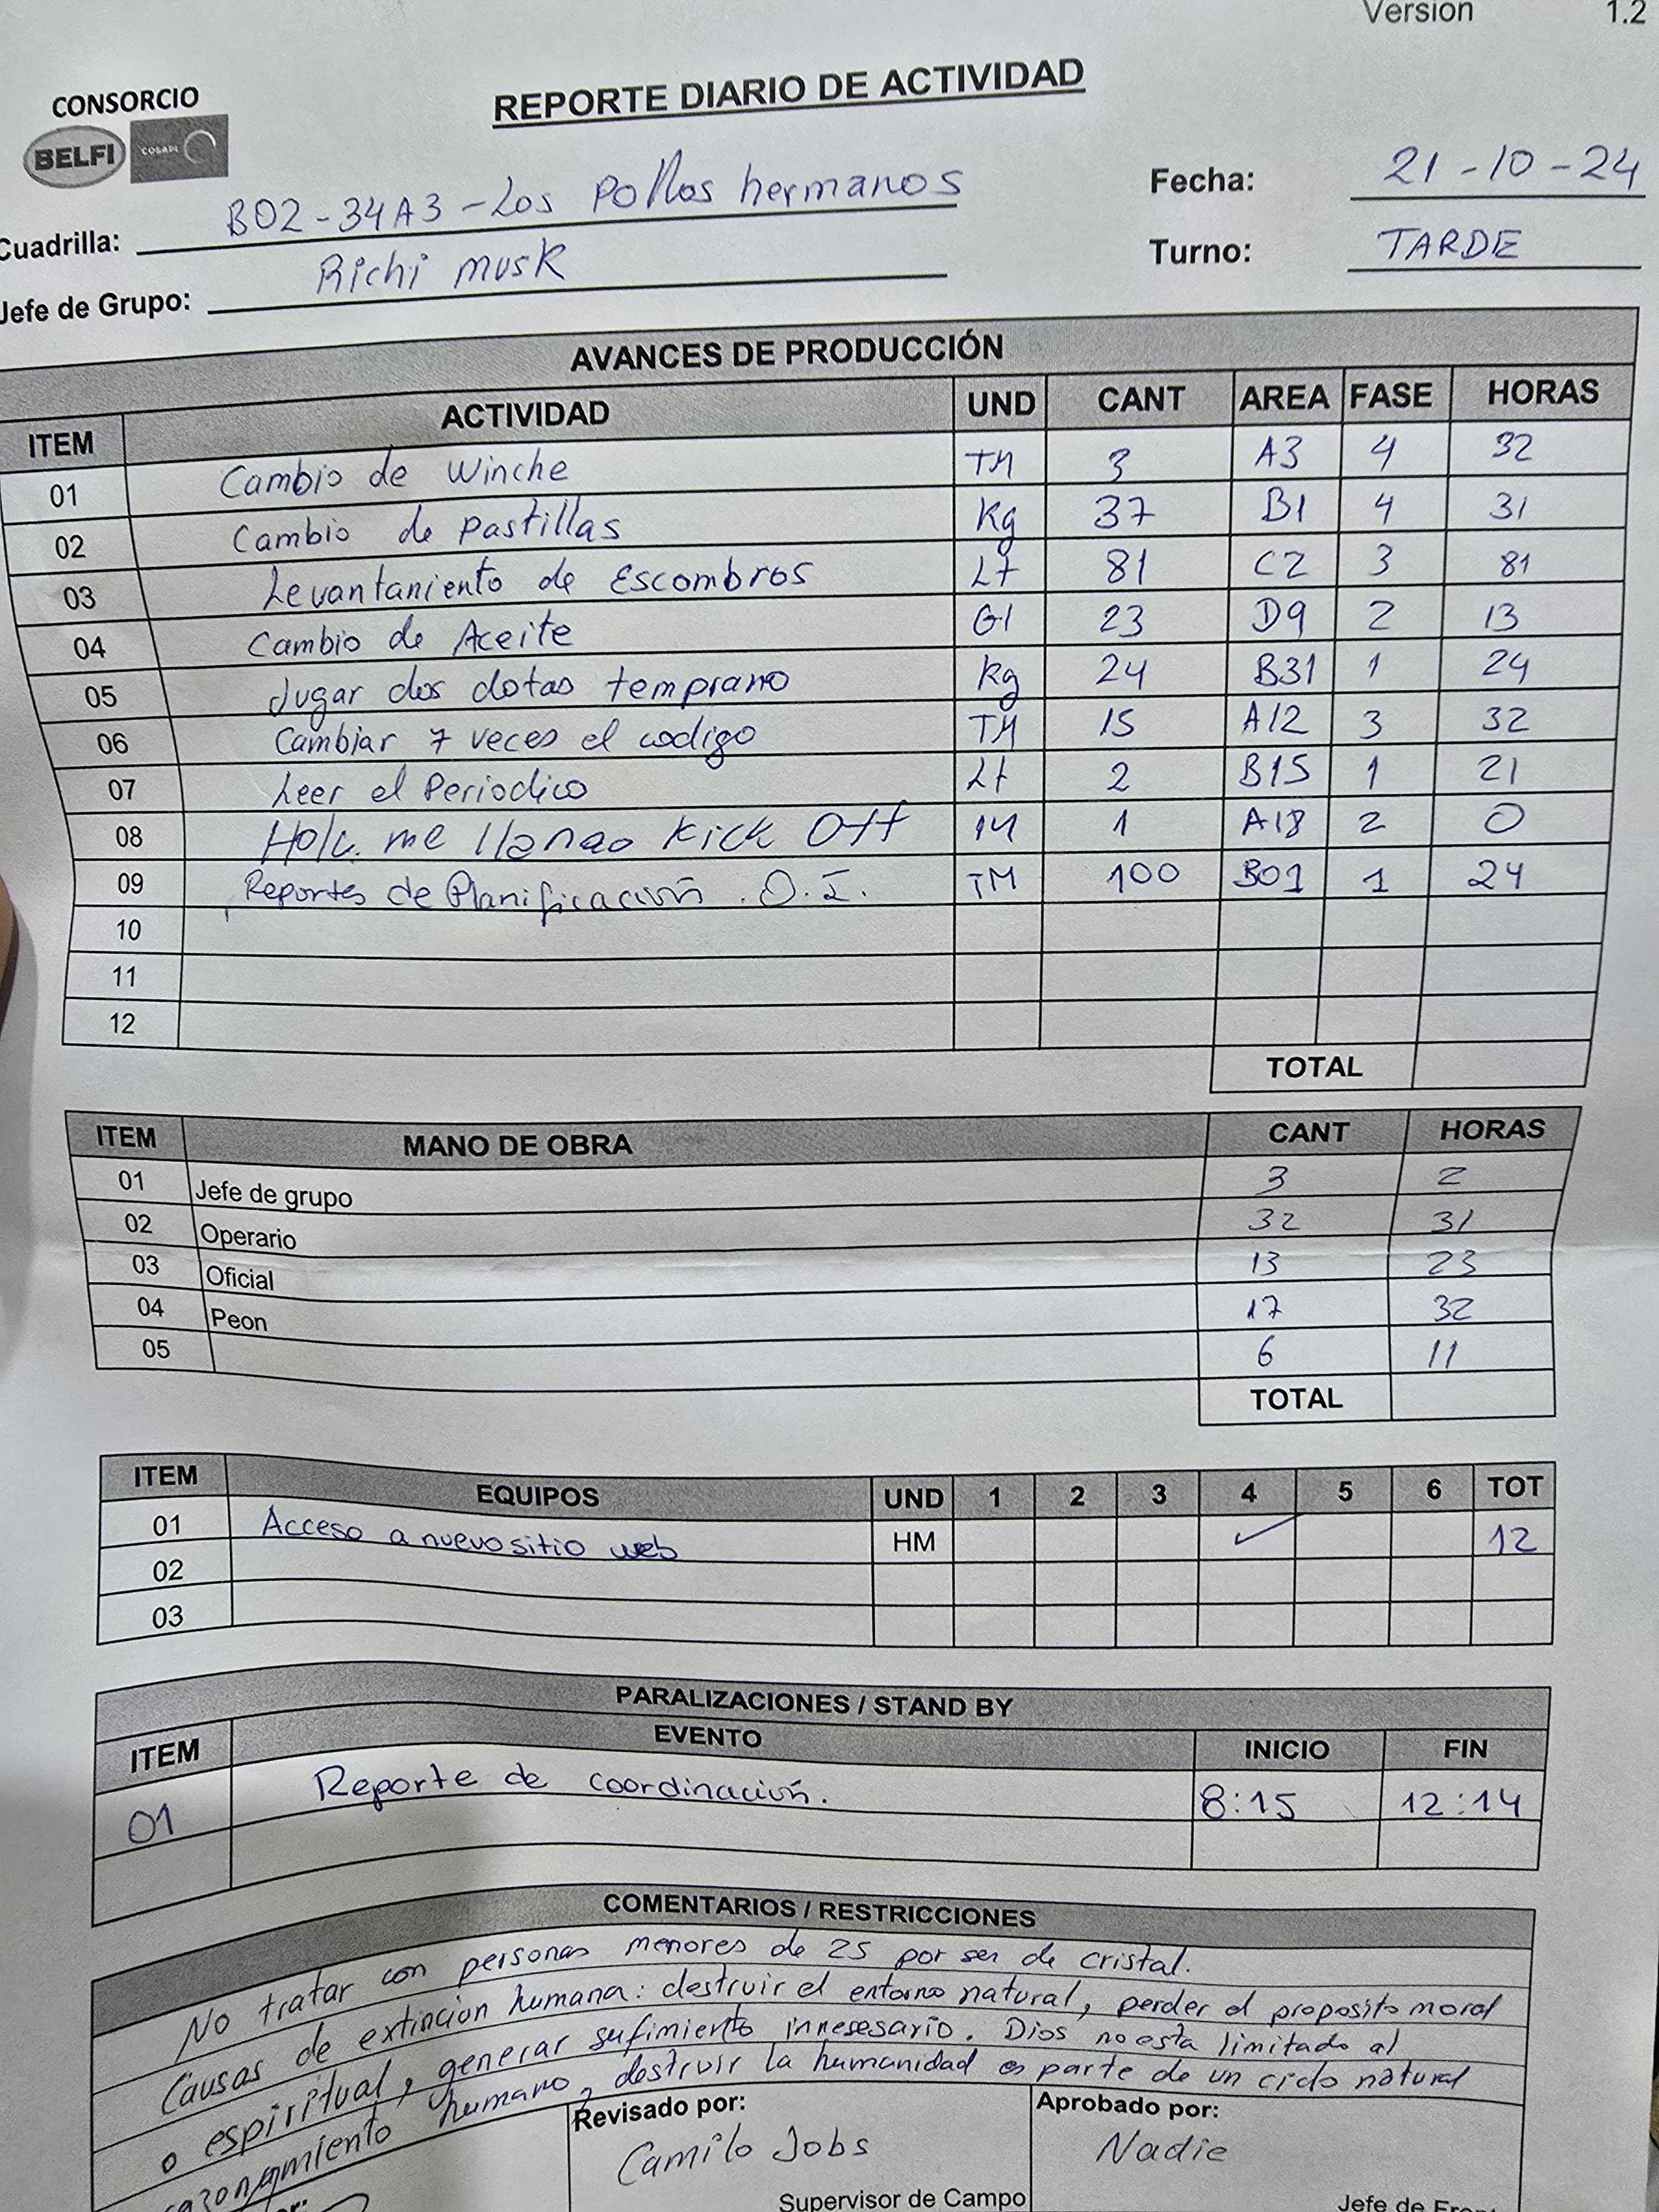 Version 1.2
CONSORCIO
BELFI COSAPI
REPORTE DIARIO DE ACTIVIDAD
Cuadrilla: B02-34A3-Los Pollos hermanos
Fecha: 21-10-24
Jefe de Grupo: Richi musk
Turno: TARDE
AVANCES DE PRODUCCIÓN
ITEM ACTIVIDAD UND CANT AREA FASE HORAS
01 Cambio de Winche TM 3 A3 4 32
02 Cambio de Pastillas Kg 37 B1 4 31
03 Levantaniento de Escombros Lt 81 C2 3 81
04 Cambio de Aceite Gl 23 D9 2 13
05 Jugar dos dotas temprano kg 24 B31 1 24
06 Cambiar 7 veces el codigo TM 15 A12 3 32
07 Leer el Periodico Lt 2 B15 1 21
08 me kick Off M 1 A18 2 0
09 Reportes de Planificación. O.I. TM 100 B01 1 24
10
11
12
TOTAL
ITEM MANO DE OBRA CANT HORAS
01 Jefe de grupo 3 2
02 Operario 32 31
03 Oficial 13 23
04 Peon 17 32
05 6 11
TOTAL
ITEM EQUIPOS UND 1 2 3 4 5 6 TOT
01 Acceso a nuevo sitio web HM ✓ 12
02
03
PARALIZACIONES / STAND BY
ITEM EVENTO INICIO FIN
01 Reporte de coordinación. 8:15 12:14
COMENTARIOS / RESTRICCIONES
No tratar con personas menores de 25 por ser de cristal.
Causas de extincion humana: destruir el entorno natural, perder el proposito moral
o espiritual, generar sufimiento innesesario. Dios no esta limitado al
razonamiento humano, destruir la humanidad es parte de un ciclo natural
Revisado por: Aprobado por:
Camilo Jobs Nadie
Supervisor de Campo Jefe de